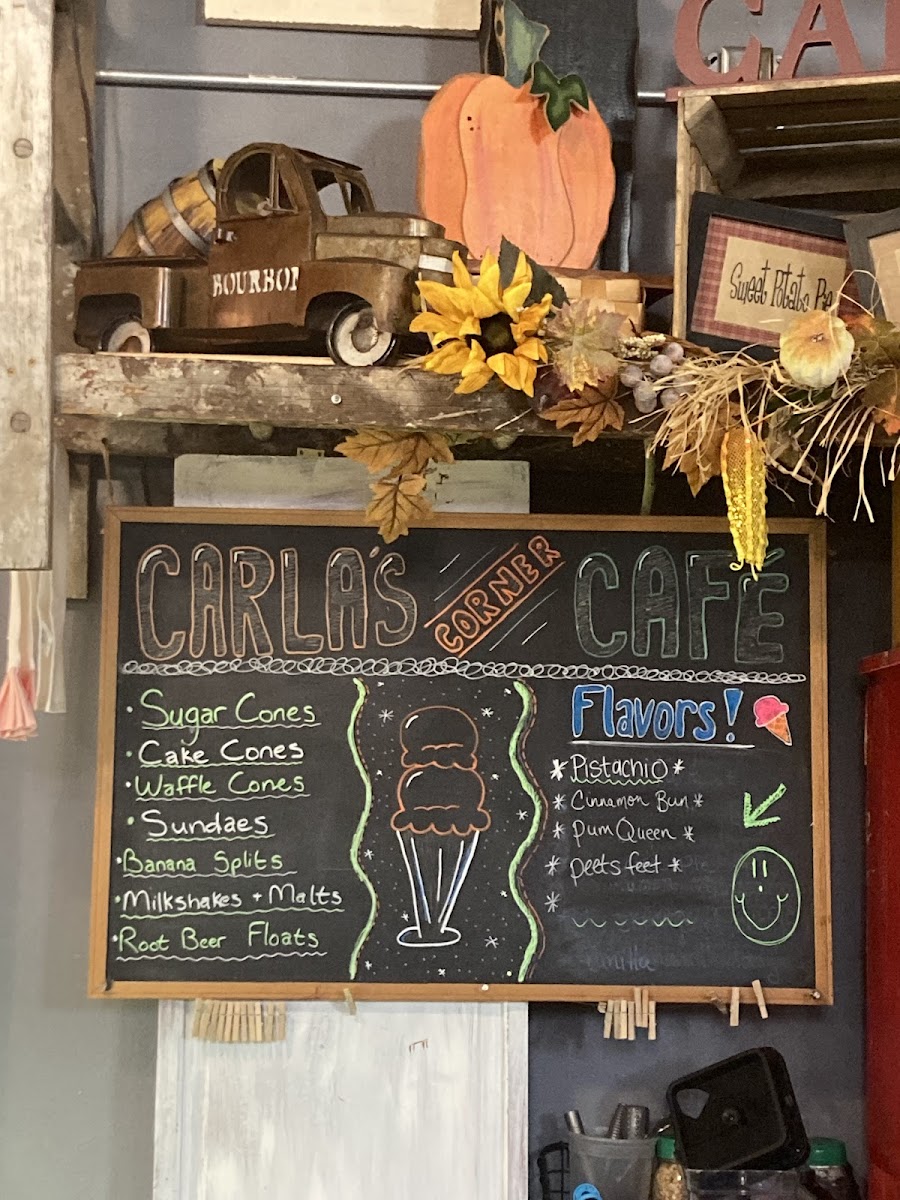 CA
BOURBON
Sweet Potato Pie
CARLA'S CORNER CAFÉ
• Sugar Cones
• Cake Cones
• Waffle Cones
• Sundaes
• Banana Splits
• Milkshakes + Malts
• Root Beer Floats
Flavors!
* Pistachio *
* Cinnamon Bun *
* Pum Queen *
* peets feet *
*